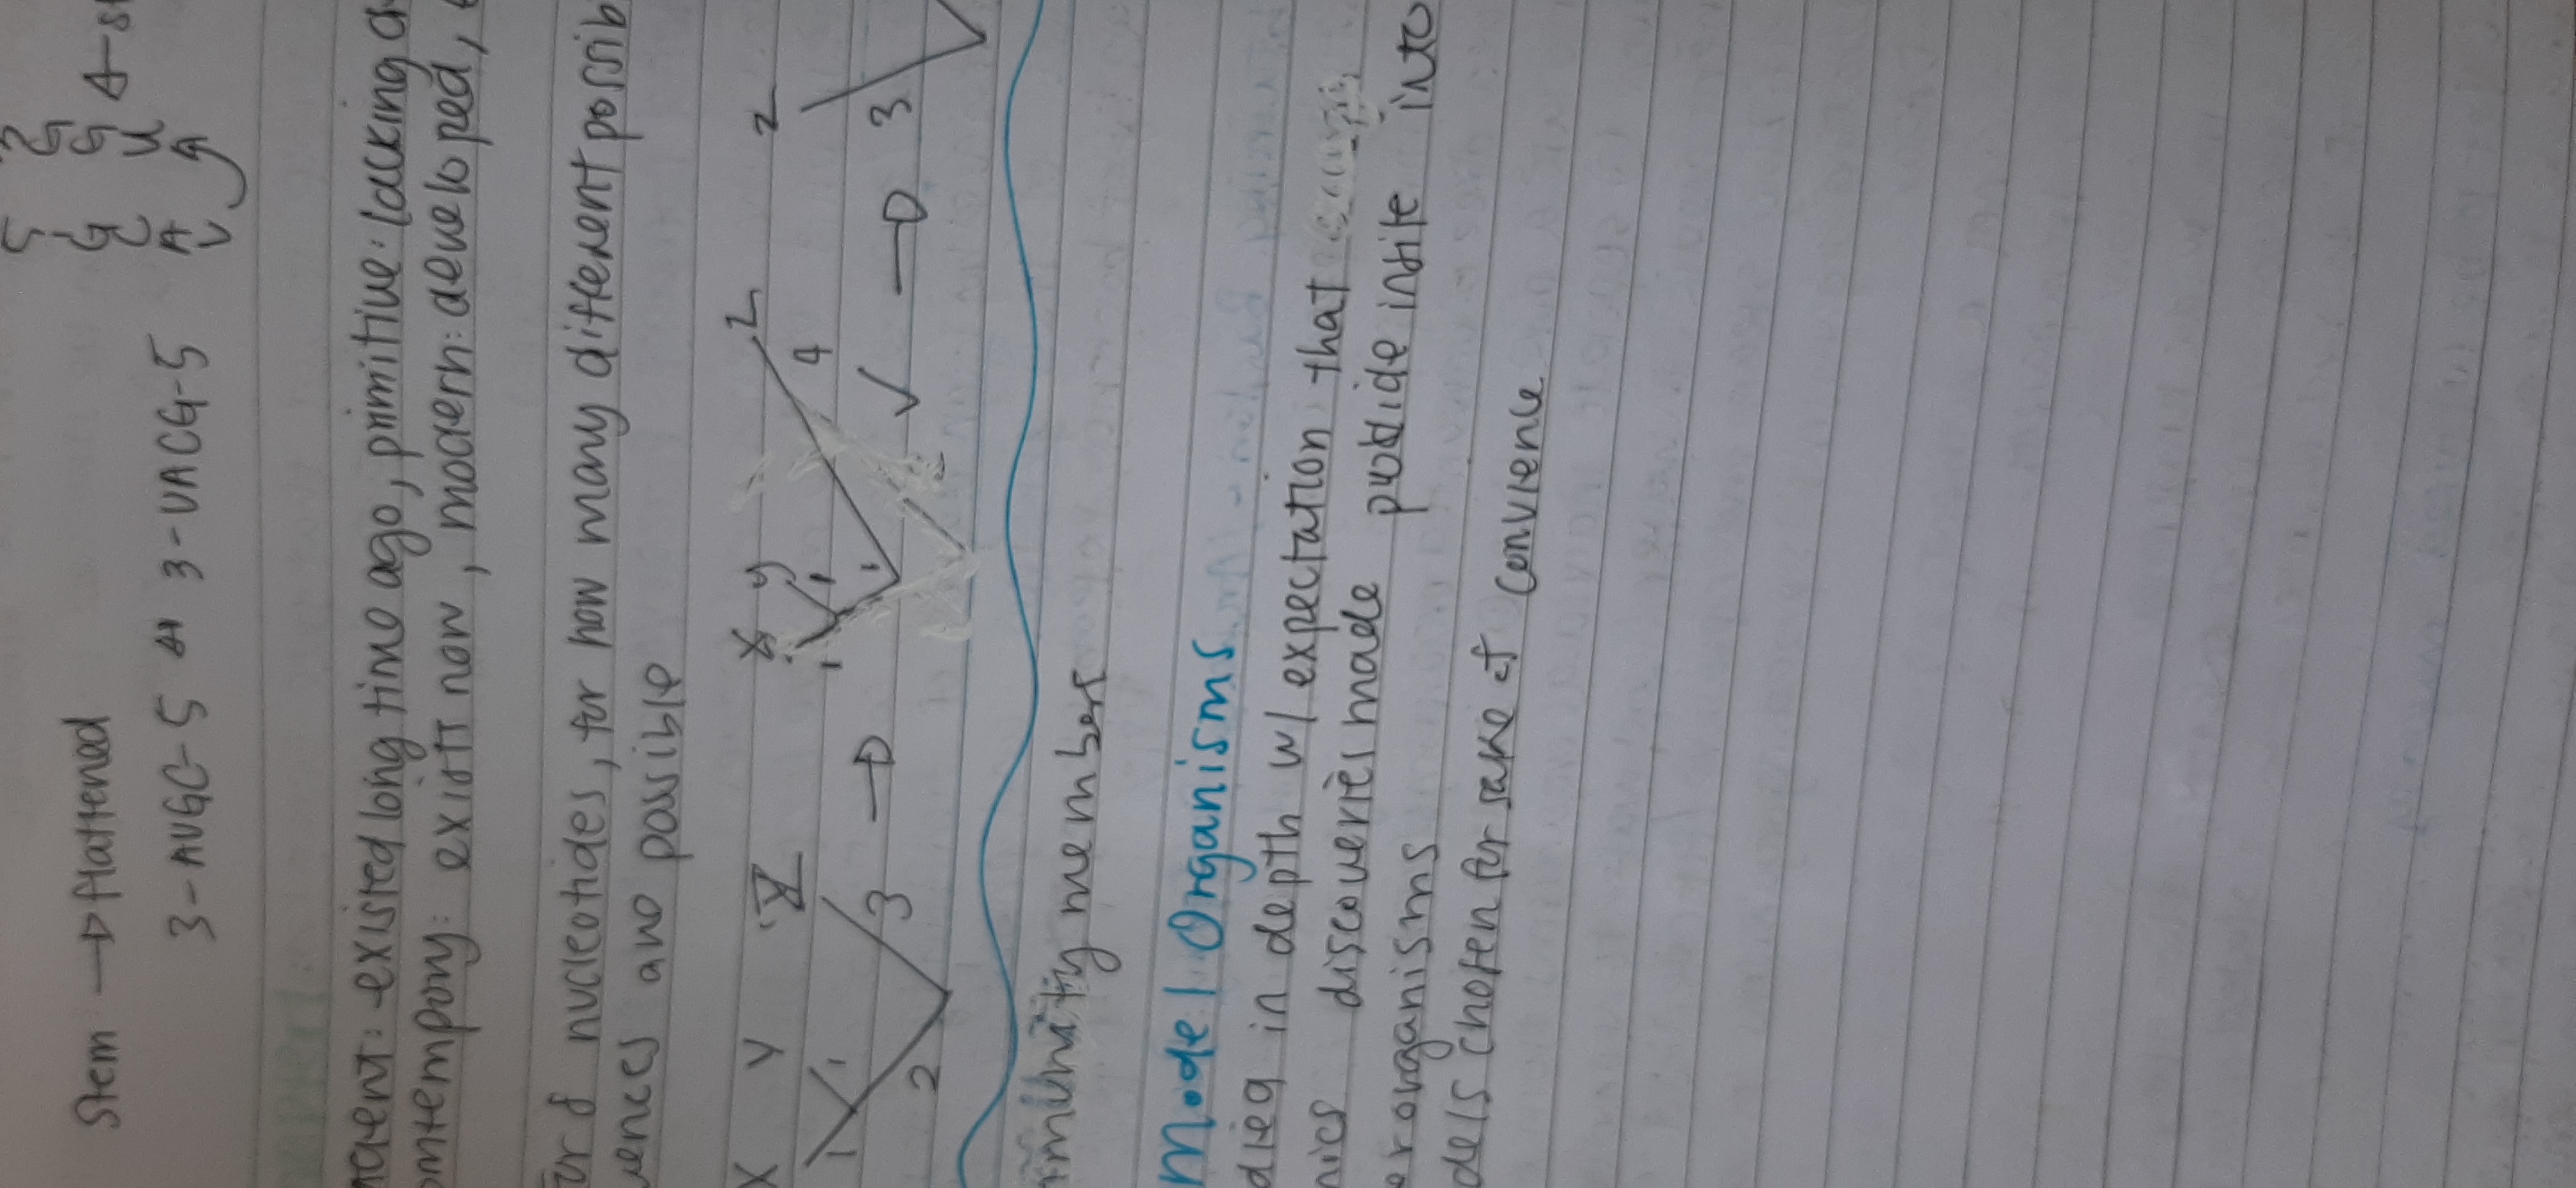 Stem → flattened
3-AUGC-5 3-UACG-5
G G
C U
A A
U
existed long time ago, primitive: lacking
omtempory: exists now, modern: developed,
8 nucleotides, for how many different possib
uences are possible
X Y Z → X Y Z → Z
1 1 3 1 1 4 3
2 1 ✓
mmunity members
Model Organisms
died in depth w/ expectation that
discoveries made provide insite into
er organisms
dels chosen for sake of convience